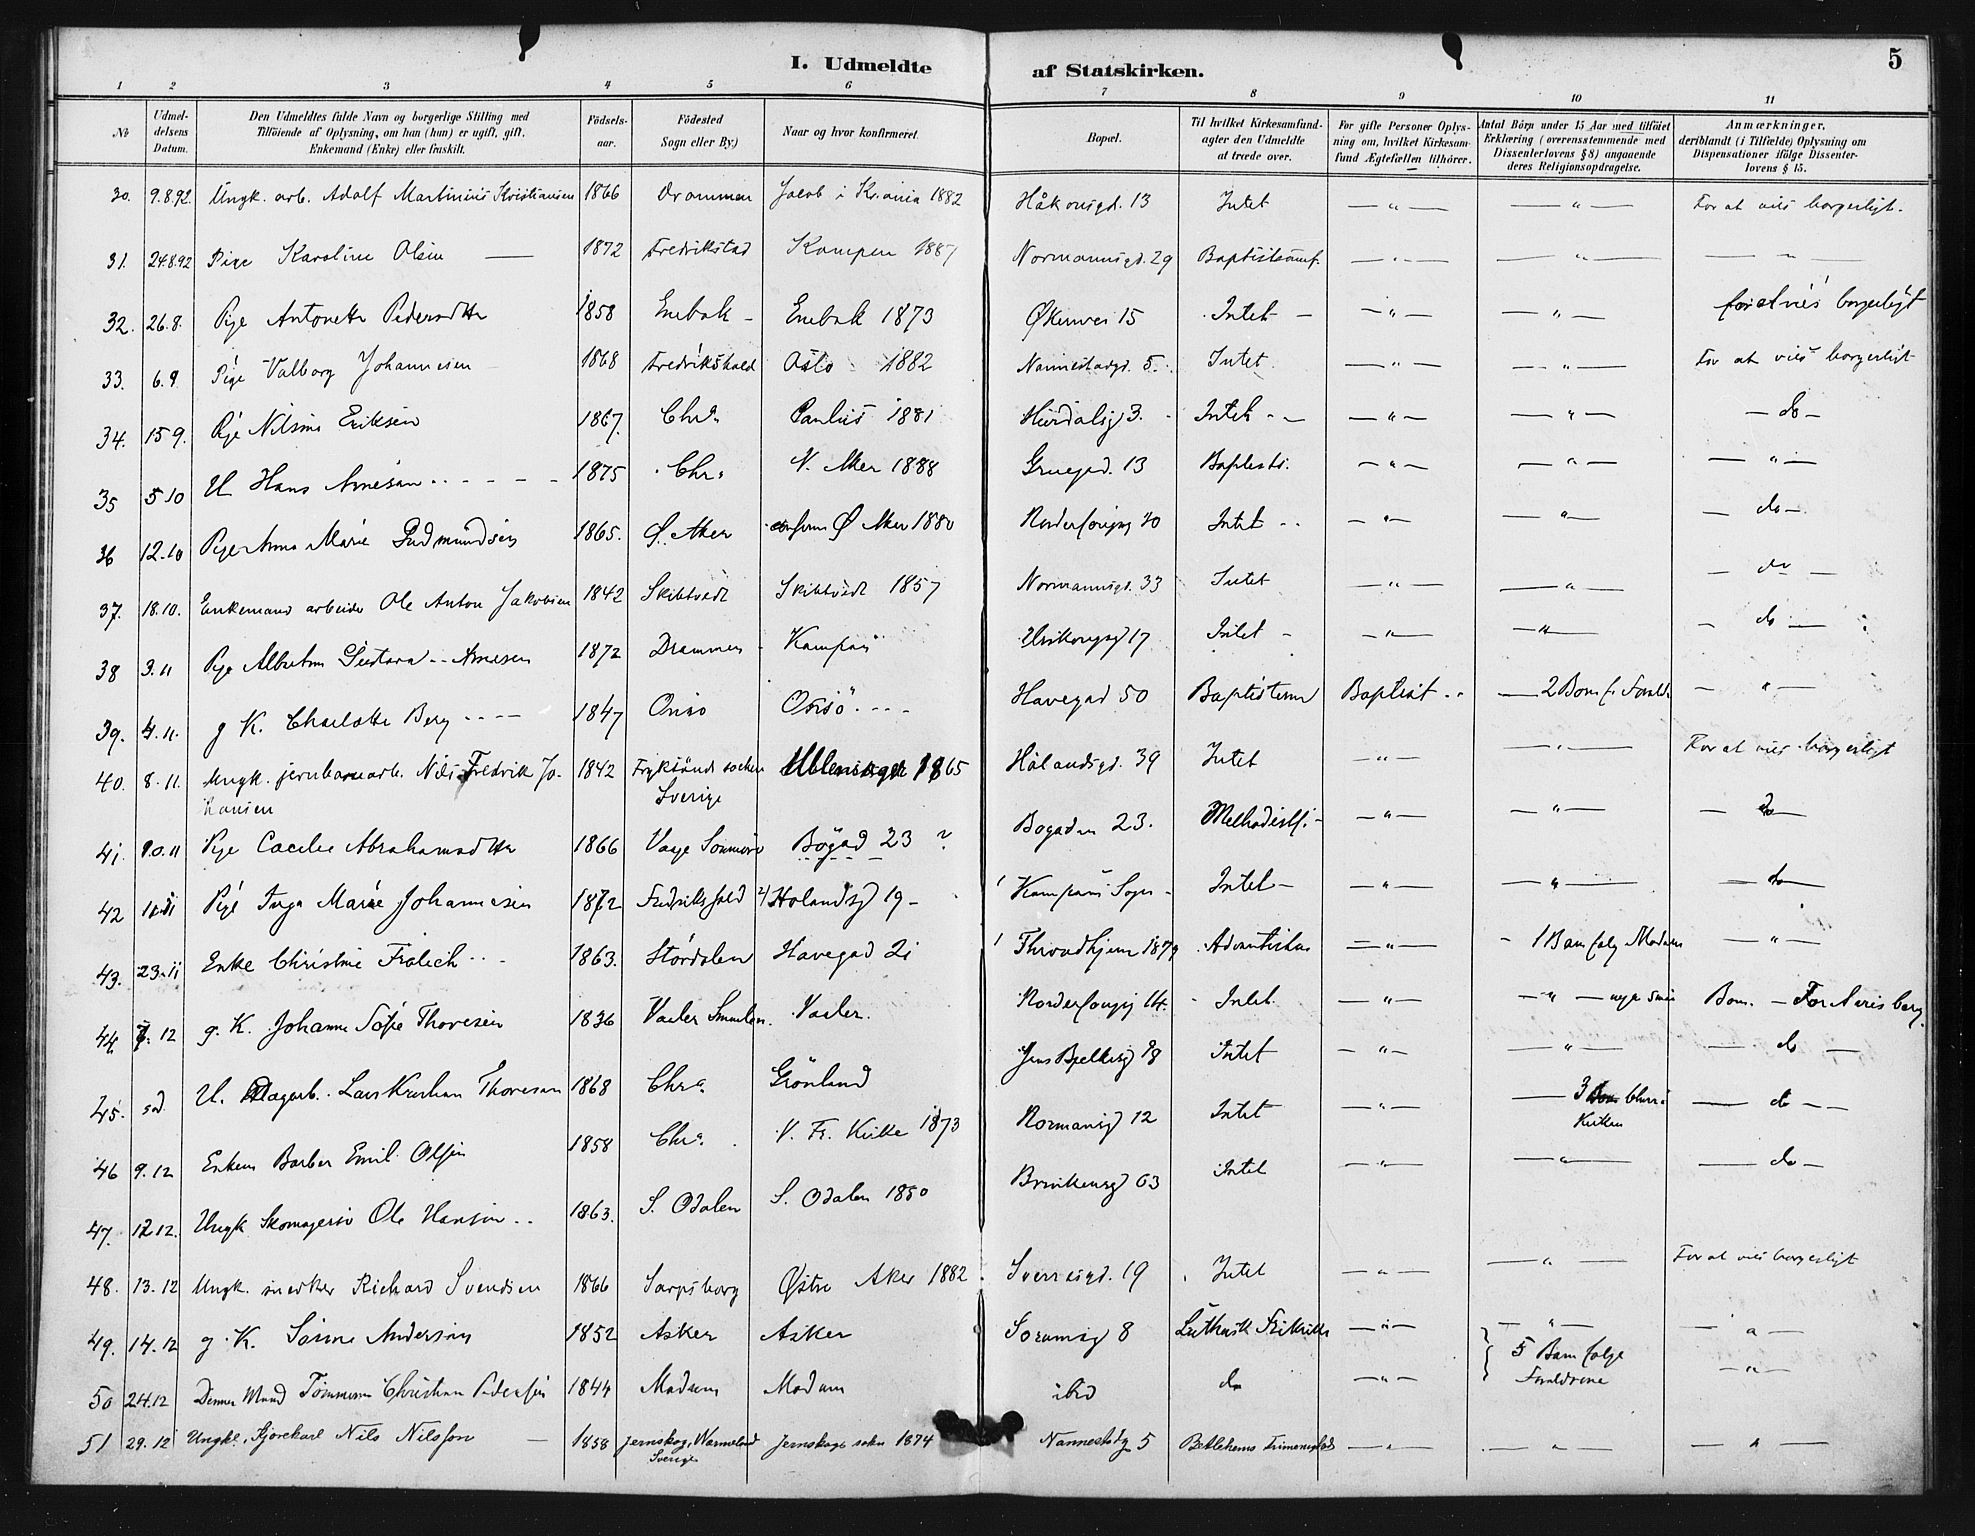 I. Udmeldte af Statskirken. 5
1 2 3 4 5 6 7 8 9 10 11
No
Udmeldelsens Datum.
Den Udmeldtes fulde Navn og borgerlige Stilling med
Tilföiende af Oplysning, om han (hun) er ugift, gift,
Enkemand (Enke) eller fraskilt.
Födselsaar.
Födested
Sogn eller By.)
Naar og hvor konfirmeret.
Bopæl.
Til hvilket Kirkesamfund-
agter den Udmeldte
at træde over.
For gifte Personer Oplys-
ning om, hvilket Kirkesam-
fund Ægtefællen tilhörer.
Antal Börn under 15 Aar med tilföiet
Erklæring (overensstemmende med
Dissenterlovens § 8) angaaende
deres Religionsopdragelse.
Anmærkninger,
deriblandt (i Tilfælde) Oplysning om
Dispensationer ifölge Dissenter-
lovens § 15.
30. 9.8.92. Ungk. arb. Adolf Martinius Kristiansen 1866 Drammen Jacob i Kr.ania 1882 Håkonsgd. 13 Intet — " — — " — For at vies borgerligt.
31. 24.8.92 Pige Karoline Olsen — 1872 Fredrikstad Kampen 1887 Normannsgd. 29 Baptistsamf. — " — — " — — " —
32. 26.8. Pige Antonette Pedersdtter 1858 Enebak – Enebak 1873 Økernvei 15 Intet – — " — — " — for at vies borgerligt
33. 6.9 Pige Valborg Johannesen 1868 Fredrikshald Oslo 1882 Nannestadgd. 5. Intet — " — — " — For at vies borgerligt
34. 15 9. Pige Nilsine Eriksen 1867. Chra Paulus 1881 Hurdalsg 3. Intet – – — " — — " — – do –
35 5 10 U Hans Arnesen 1875 Chra V. Aker 1888 Gruegad. 13 Baptists. — " — — " — — " —
36 12.10 Pige Anna Marie Gudmundsen 1865. Ø. Aker Ø Aker 1880 20 Intet – – — " — — " — — do –
37. 18.10. Enkemand arbeider Ole Anton Jakobsen 1842 Skibtvedt Skibtvedt 1857 Normannsgd. 33 Intet — " — — " — — do —
38 3.11 Pige Gustava Arnesen 1872 Drammen Kampen 17 Intet – — " — — " — — do —
39. 4.11. g K. Charlotte Berg – – – – 1847 Onsö Onsö – – – Havegad 50 Baptisterne Baptist – – — 2 Börn f. — " —
40. 8.11. Ungk. jernbanearb. Nils Fredrik Jo-
hansen 1842 Fryksände socken
Sverige Ullensager 1865 Hölandsgd. 39 Intet — " — — " — For at vies borgerligt
41. 10.11 Pige Cacilie Abrahamsdtter 1866 Bögad 23 ? Bogaden 23. Methodistk. – — " — — " — — do —
42 Pige Inga Marie Johannesen 1872 Fredrikshald 2/ Holandsg 19 – Kampens Sogn – Intet – — " — — " — — do —
43. 23.11 Enke Christine Frölich – – – 1863. Stördalen Havegad 21 Throndhjem 1879 — " — – 1 Barn — " —
44 7. 12 g. K. Johanne Sofie Thoresen 1836 Vaaler Vaaler 14. – Intet. — " — — " — Börn. — For at vies borg.
45. s.d. U. Thoresen 1868 Chra. Grönland Jens Bjelkesg 18 Intet — " — — " — — do —
46 9.12 Enkem Barber Emil Olsen 1858 Chra. V. Fr. Kirke 1873 Normansg 12 Intet — " — — 3
Kirken — do – –
47. 12 12. Ungk Skomagersv Ole Hansen – – 1863. S. Odalen S. Odalen 1880 63 Intet — " — — " — — do –
48. 13.12 Ungk. snedker Richard Svendsen 1866 Sarpsborg Østre Aker 1882 Sverresgd. 19 Intet — " — — " — For at vies borgerligt
49. 14.12 g. K. Andersen 1852 Asker Asker Sorumsg 8 Luthersk Frikirke — " — — " — — " —
5 Barn følge
Foraldrene
50 24.12 Dennes Mand Tömmerm Christian Pedersen 1844 Modum Modum ibid do — " — — " —
51 29.12 Ungkl. Kjørekarl Nils Nilsson — 1858 Jernskog, Wermeland
Sverige Jernskogs sokn 1874 Nannestadg 5 Betlehems Frimenighed — " — — " — — " —